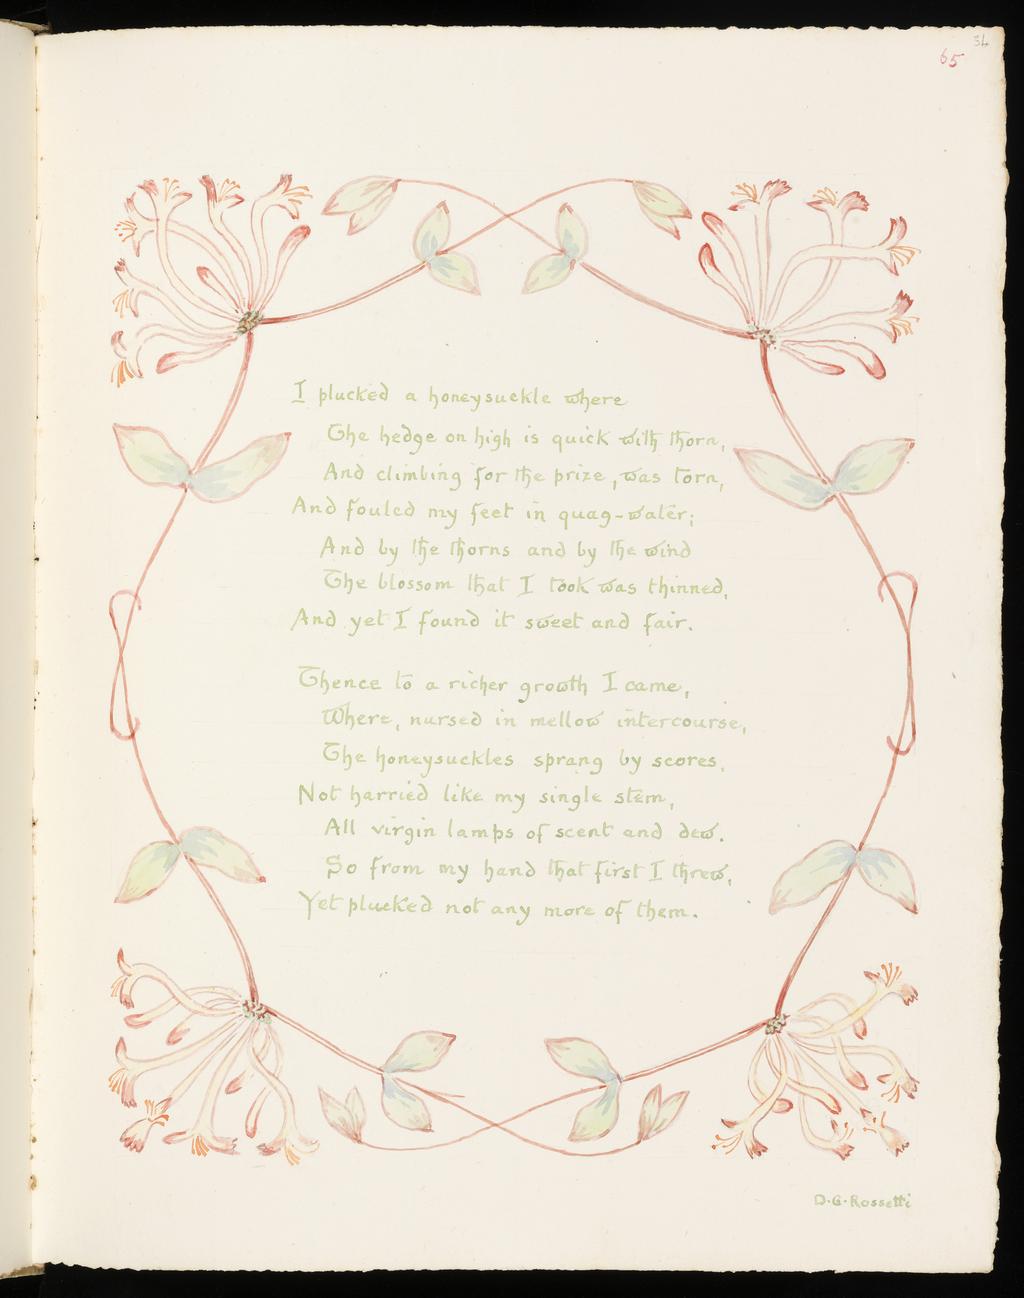 34
65
I plucked a honeysuckle where
The hedge on high is quick with thorn,
And climbing for the prize, was torn,
And fouled my feet in quag-water;
And by the thorns and by the wind
The blossom that I took was thinned,
And yet I found it sweet and fair.
Thence to a richer growth I came,
Where, nursed in mellow intercourse,
The honeysuckles sprang by scores,
Not harried like my single stem,
All virgin lamps of scent and dew.
So from my hand that first I threw,
Yet plucked not any more of them.
D·G·Rossetti